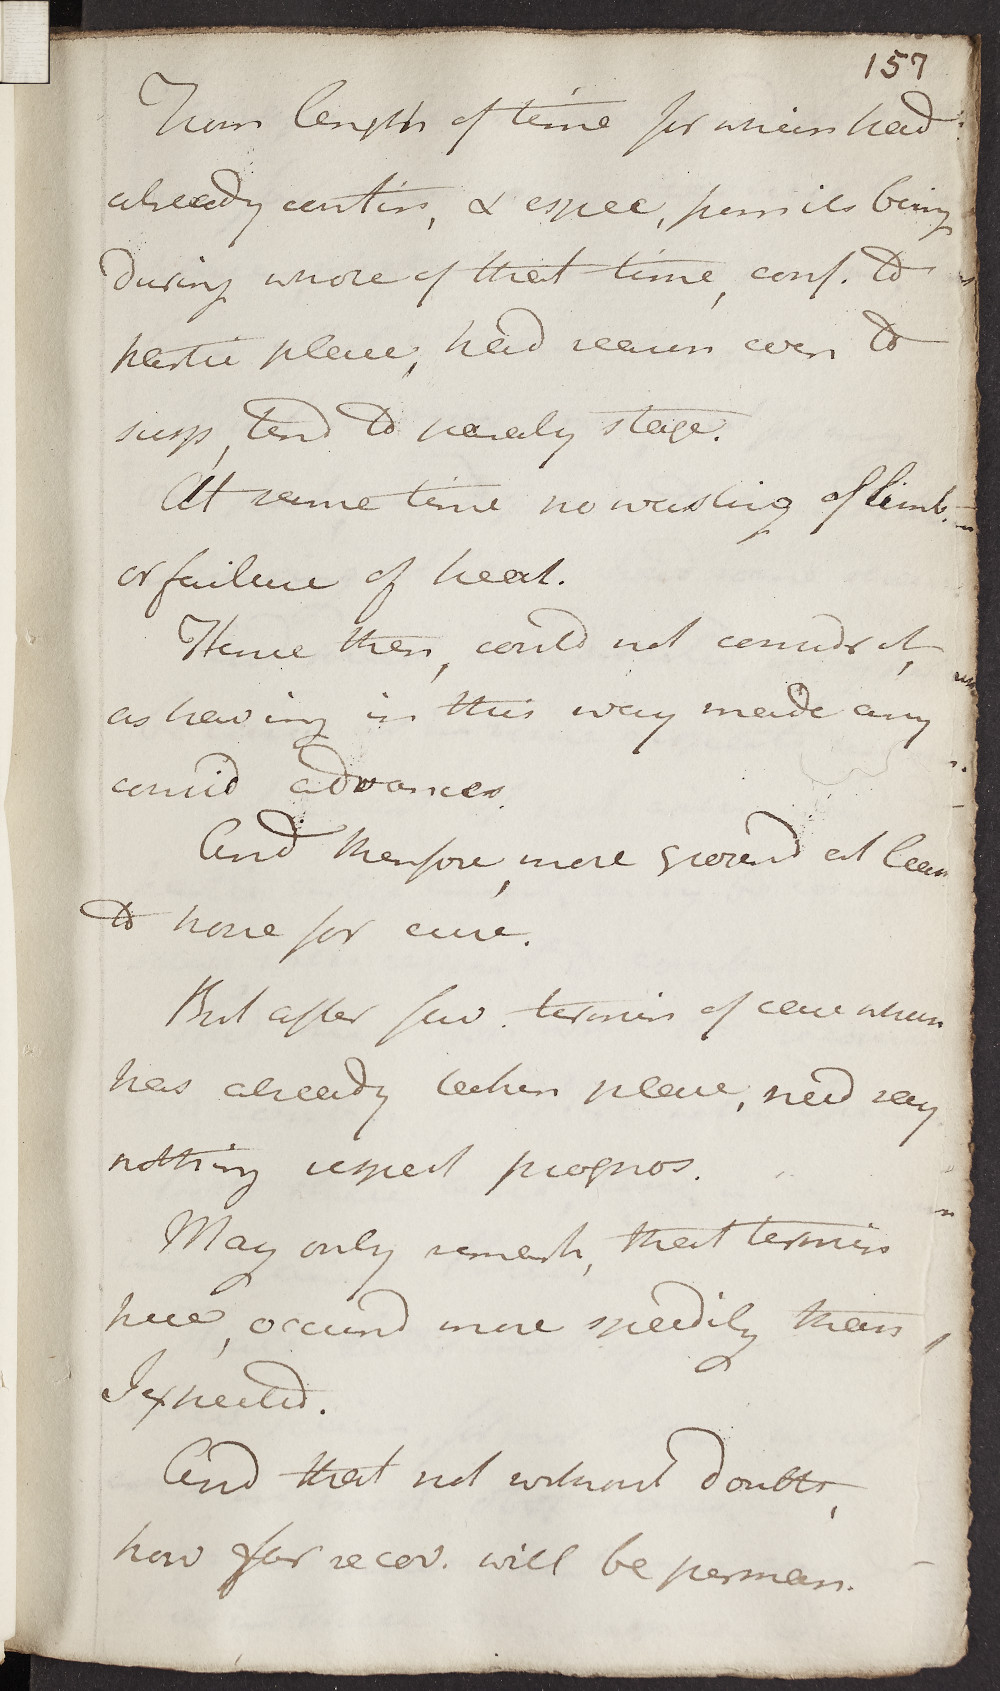 157
From length of time for which had
already contin, & espec, from its being
during whole of that time, conf. to
partic place, had reason even to
susp, tend to paraly stage.
At same time no wasting of limb.
or failure of heat.
Hence then, could not consider it,
as having in this way made any
consid advances.
And therefore, more ground at least
to hope for cure.
But after fav. termin of case when
has already taken place, need say
nothing respect prognos.
May only remark, that termin
here, occurrd more speedily than
I expected.
And that not without doubts,
how far recov. will be perman.